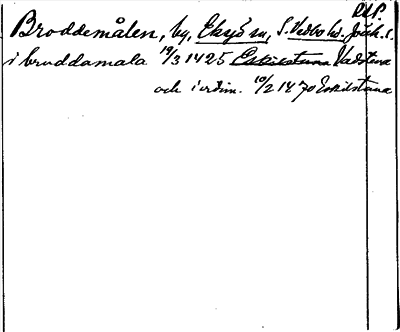 RAP.
Broddemålen, by, Eksjö sn, S. Vedbo hd. Jönk. l.
i bruddamala 19/3 1425 Eskilstuna Vadstena
och i ordin. 10/2 1470 Eskilstuna